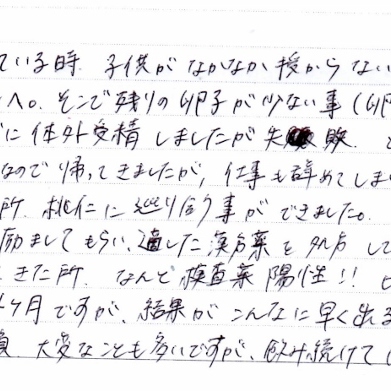 ている時、子供がなかなか授からない
へ。そこで残りの卵子が少ない事(卵
に体外受精しましたが失敗、
なので帰ってきましたが、仕事も辞めてしま
所、桃仁に巡り合う事ができました。
励ましてもらい、適した漢方薬を処方して
きた所、なんと検査薬陽性!!
ヶ月ですが、結果がこんなに早く出る
大変なことも多いですが、飲み続けて